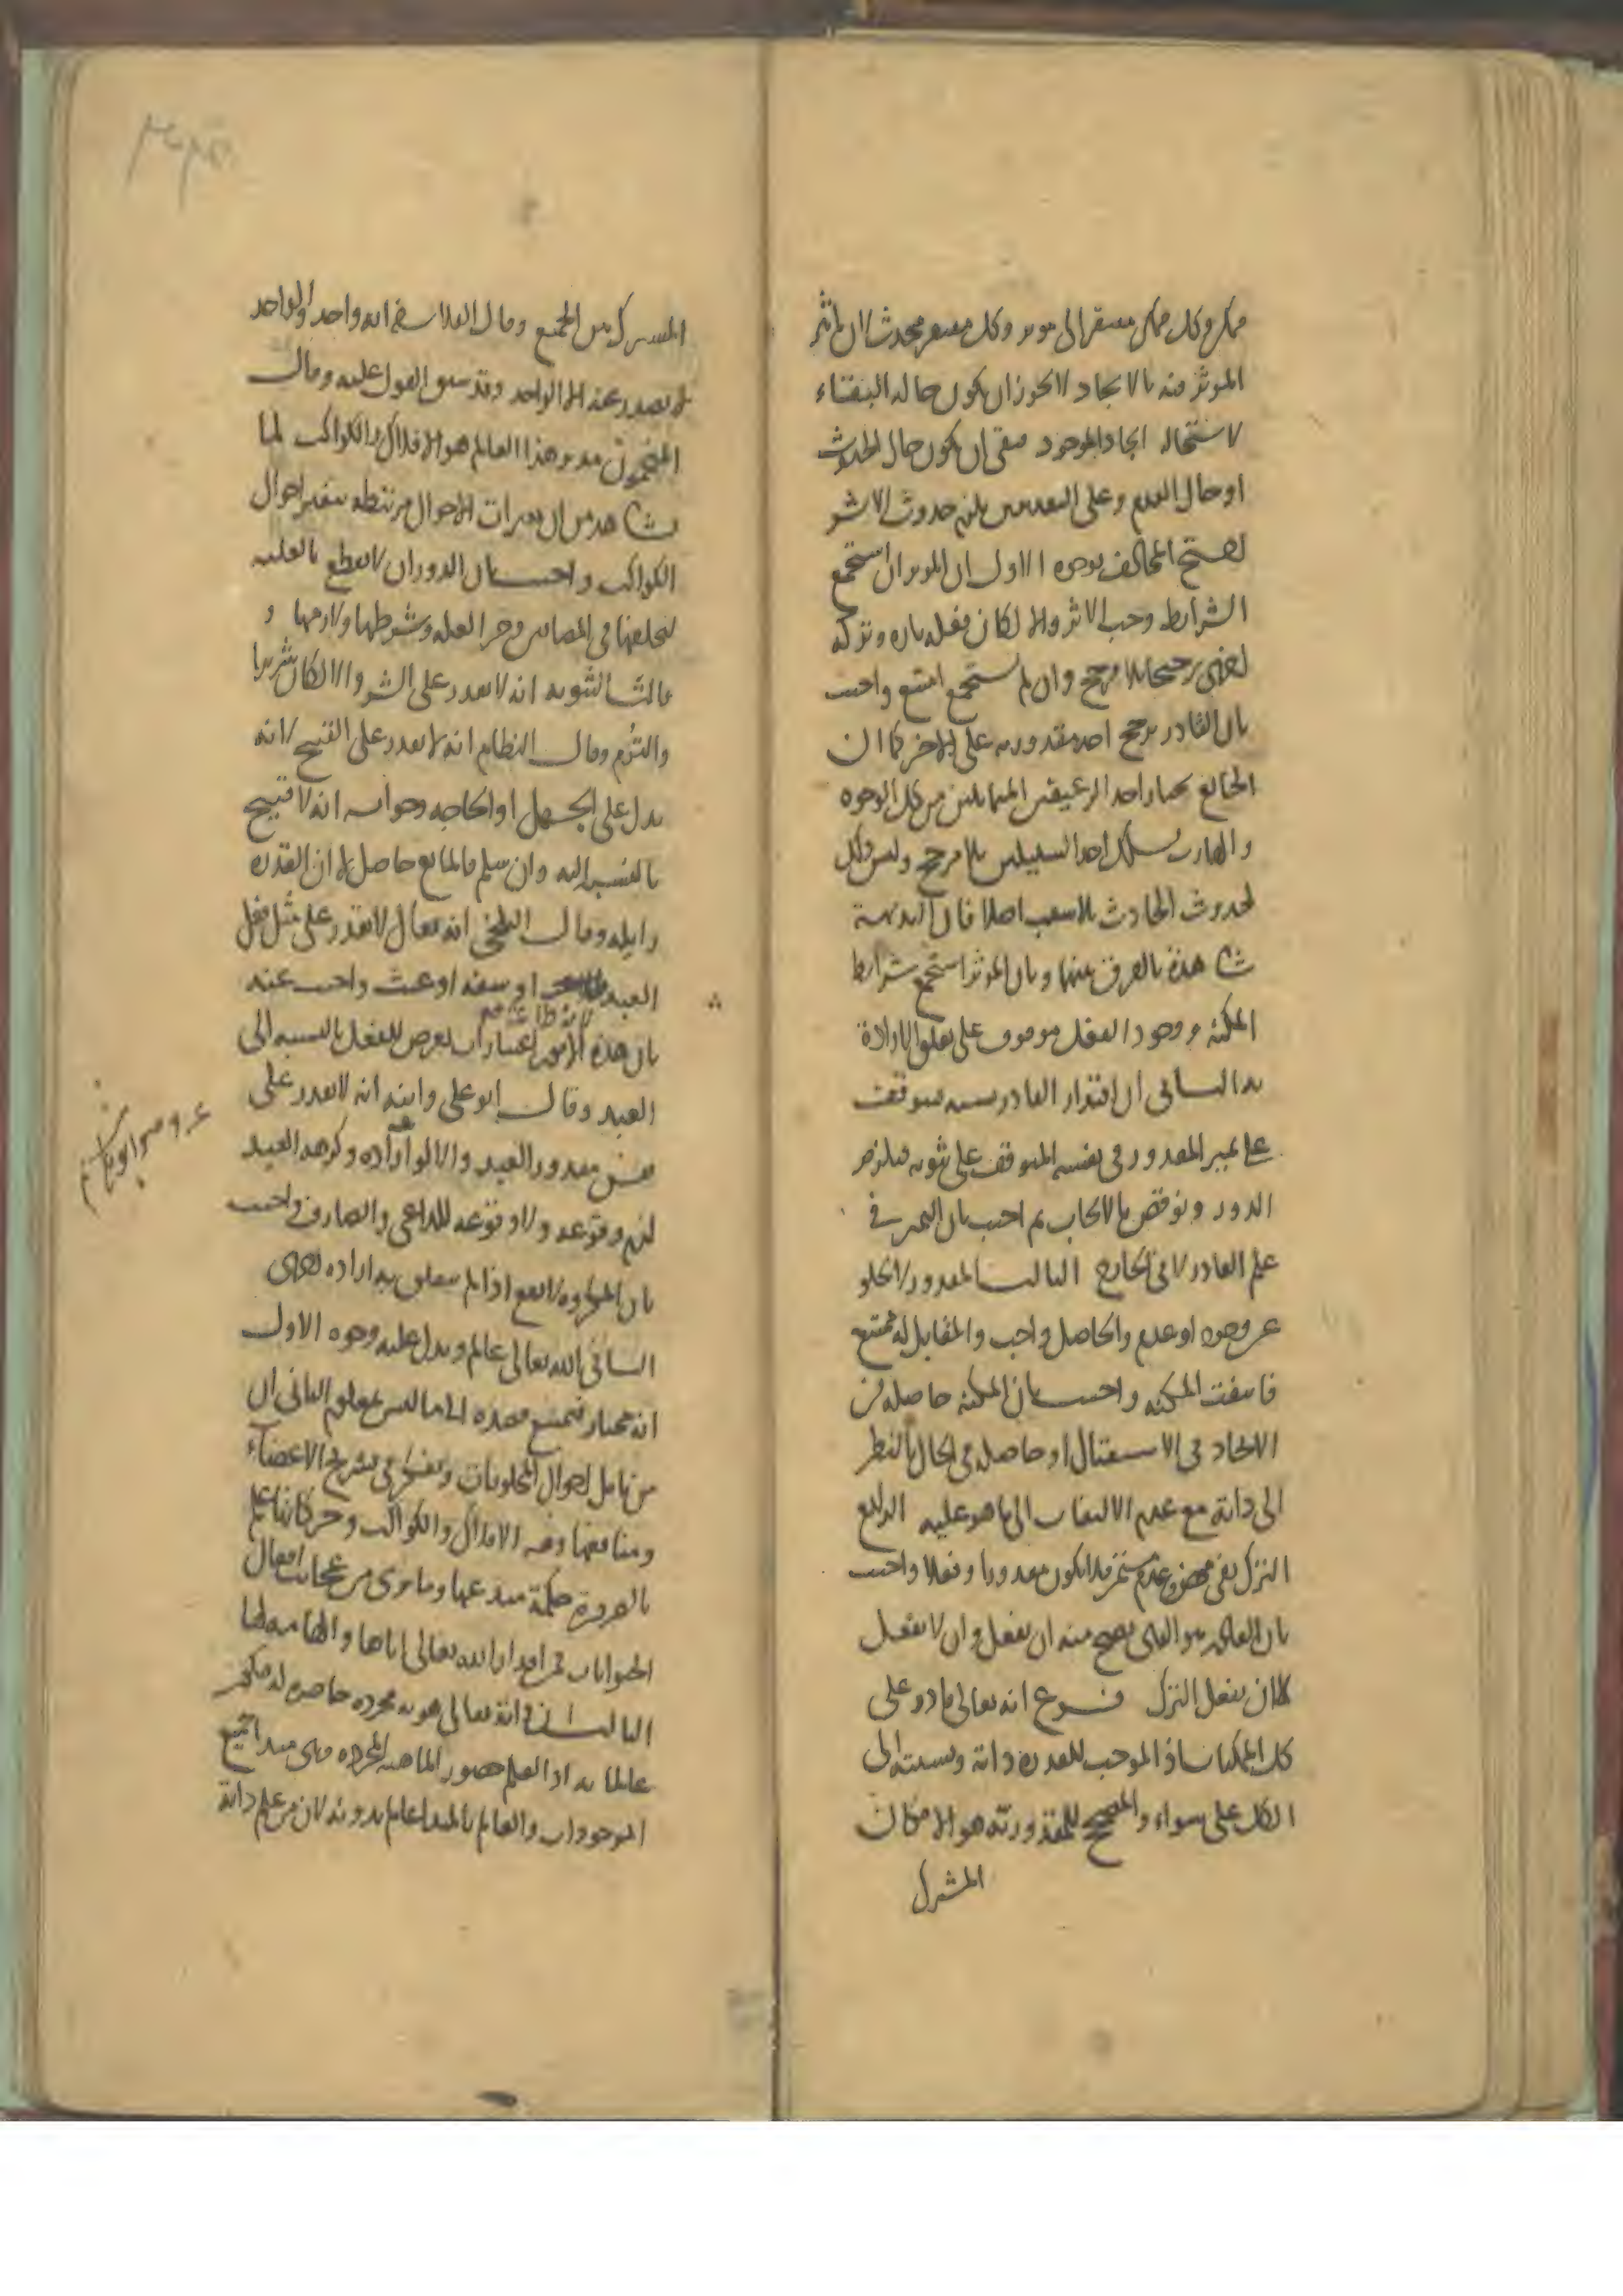 ممكن وكل ممكن مفتقر الى موثر وكل مفتقر محدث لان تاثير
الموثر فيه بالايجاد لا يجوز ان يكون حاله البقاء
لاستحالة ايجاد الموجود فبقى ان يكون حال الحدوث
او حال العدم وعلى التقديرين يلزم حدوث الاثر
احتج المخالف بوجوه الاول ان الموثر ان استجمع
الشرايط وجب الاثر والا لكان فعله تارة وتركه
اخرى ترجيحا بلا مرجح وان لم يستجمع امتنع واجيب
بان القادر يرجح احد مقدوريه على الاخر كما ان
الجائع يختار احد الرغيفين المتماثلين من كل الوجوه
والهارب يسلك احد السبيلين بلا مرجح وليس ذلك
كحدوث الحادث بلا سبب اصلا فان البديهة
شاهدة بالفرق بينهما وبان الموثر استجمع شرايط
المكنة ووجود الفعل موقوف على تعلق الارادة
به الثانى ان اقتدار القادر نسبة فيتوقف
على تميز المقدور فى نفسه المتوقف على ثبوته فيلزم
الدور ونوقض بالايجاب ثم اجيب بان التميز فى
علم القادر لا فى الخارج الثالث المقدور لا يخلو
عن وجود او عدم والحاصل واجب والمقابل له ممتنع
فانتفت المكنة واجيب بان المكنة حاصلة من
الايجاد فى الاستقبال او حاصلة فى الحال بالنظر
الى ذاته مع عدم الالتفات الى ما هو عليه الرابع
الترك نفى محض وعدم مستمر فلا يكون مقدورا وفعلا واجيب
بان القادر هو الذى يصح منه ان يفعل وان لا يفعل
لا ان يفعل الترك فرع انه تعالى قادر على
كل الممكنات اذ الموجب للقدرة ذاته ونسبته الى
الكل على سواء والمصحح للمقدورية هو الامكان
المشترك
المشترك بين الجميع وقال الفلاسفة انه واحد والواحد
لا يصدر عنه الا الواحد وقد سبق القول عليه وقال
المنجمون مدبر هذا العالم هو الافلاك والكواكب لما
نشاهد من ان تغيرات الاحوال مرتبطة بتغير احوال
الكواكب واجيب بان الدوران لا يقطع بالعلية
لتخلفها فى المضايف وجزء العلة وشرطها ولازمها و
قالت الثنوية انه لا يقدر على الشر والا لكان شريرا
والتزم وقال النظام انه لا يقدر على القبيح لانه
يدل على الجهل او الحاجه وجوابه انه لا قبيح
بالنسبة اليه وان سلم فالمانع حاصل لا ان القدرة
زايلة وقال البلخى انه تعالى لا يقدر على مثل فعل
العبد او سفه او عبث واجيب عنه
بان هذه الامور اعتبارات تعرض للفعل بالنسبة الى
العبد وقال ابو على وابنه انه لا يقدر على
نفس مقدور العبد والا لو اراده وكرهه العبد
لزم وقوعه ولا وقوعه للداعى والصارف واجيب
بان المكروه لا يقع اذا لم يتعلق به ارادة اخرى
الثانى انه تعالى عالم ويدل عليه وجوه الاول
انه مختار فيمتنع قصده الى ما ليس بمعلوم الثانى ان
من تامل احوال المخلوقات وتفكر فى تشريح الاعضاء
ومنافعها وهيئة الافلاك والكواكب وحركاتها علم
بالضرورة حكمة مبدعها وما يرى من عجائب افعال
الحيوانات فمن اقدار الله تعالى اياها والهامه لها
الثالث ان ذاته تعالى هوية مجردة حاضرة له فيكون
عالما به اذ العلم حضور الماهية المجردة وهى مبدا جميع
الموجودات والعالم بالمبدا عالم بذويه لان من علم ذاته